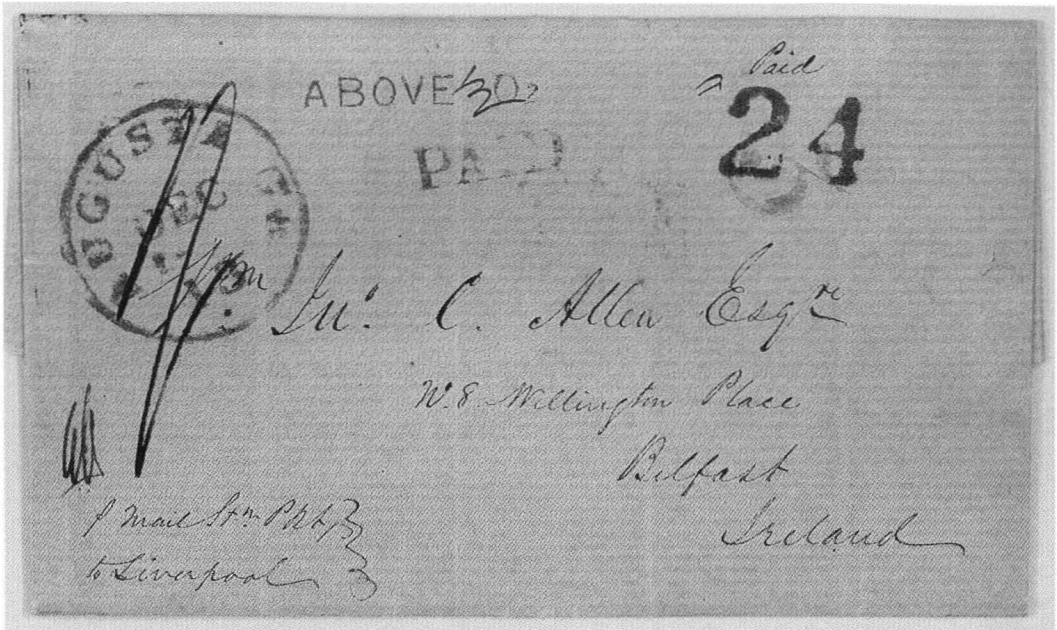 Paid
ABOVE ½ Oz
24
PAID
AUGUSTA Ga
DEC
Jnº. C. Allen Esqre
Nº. 8 Wellington Place
Belfast
Ireland
p Mail Stm Pkt,
to Liverpool